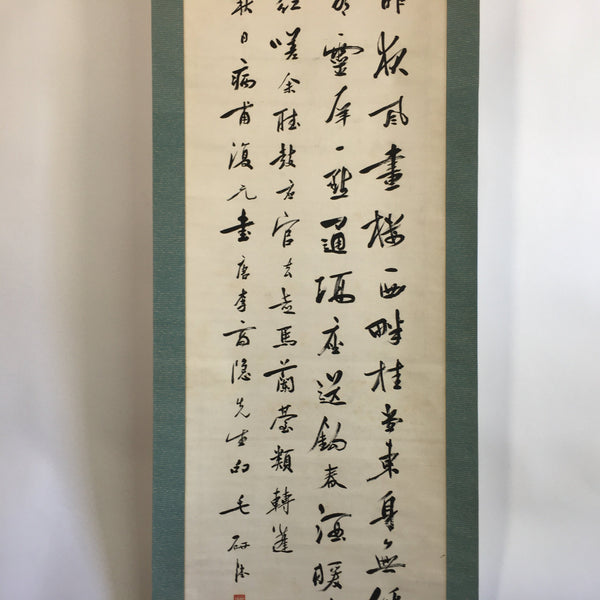 昨夜風畫樓西畔桂堂東身無
有靈犀一點通隔座送鈎春酒暖
紅嗟余聽鼓應官去走馬蘭臺類轉蓬
秋日病甫復元書唐李商隱先生句毛研